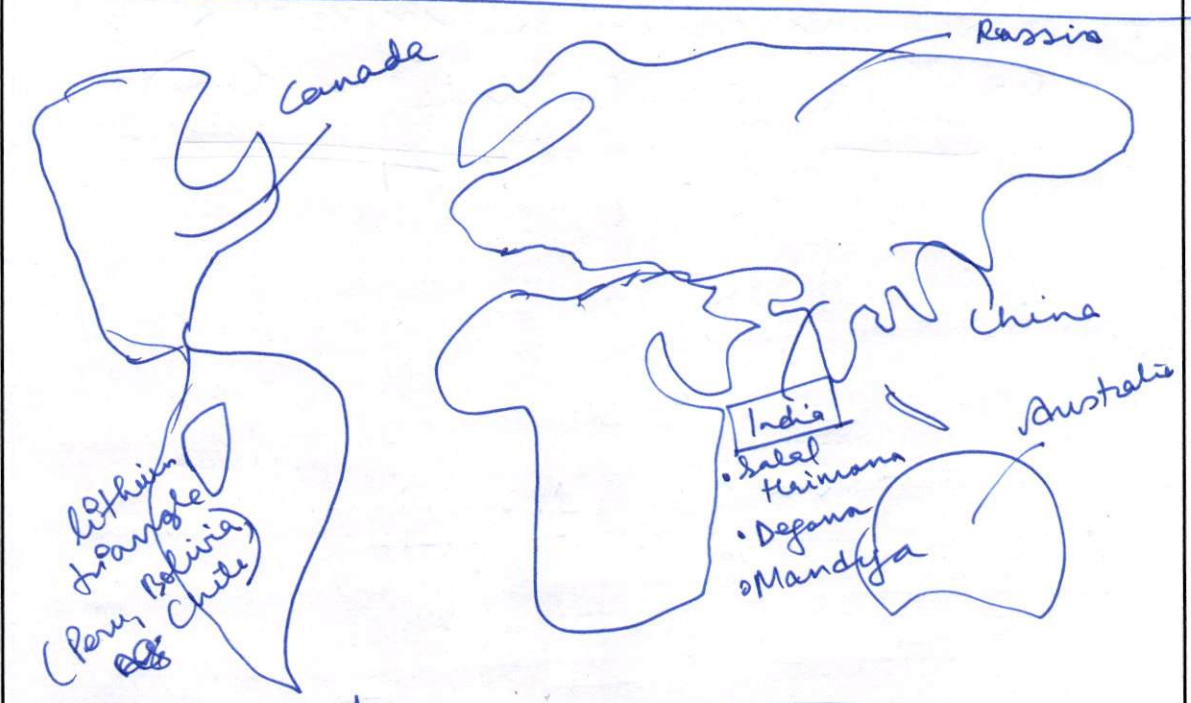 Russia
Canada
China
Australia
India
• Salal
Haimana
• Degana
• Mandya
lithium
triangle
(Peru, Bolivia,
Chile)